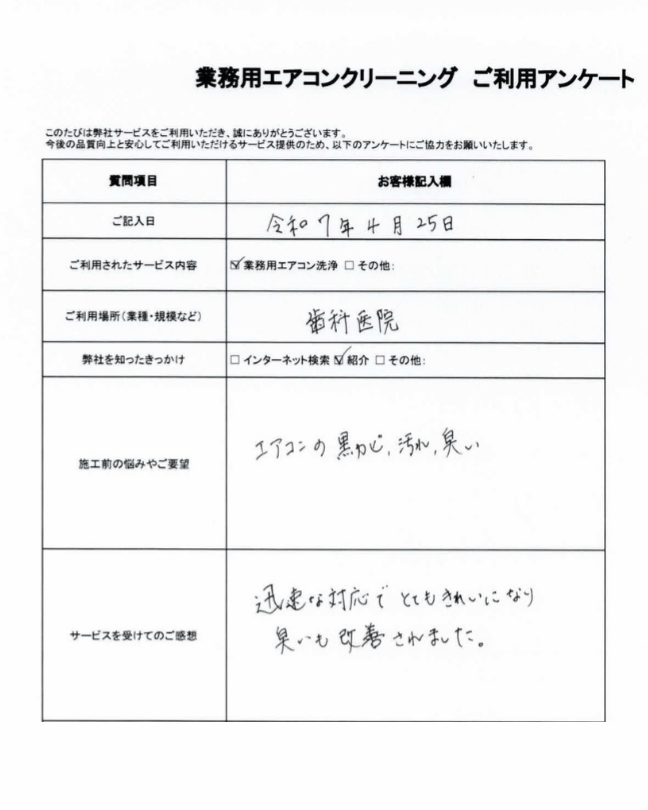 業務用エアコンクリーニング ご利用アンケート
このたびは弊社サービスをご利用いただき、誠にありがとうございます。
今後の品質向上と安心してご利用いただけるサービス提供のため、以下のアンケートにご協力をお願いいたします。
質問項目 お客様記入欄
ご記入日 令和7年4月25日
ご利用されたサービス内容 ☑業務用エアコン洗浄 ☐その他:
ご利用場所(業種・規模など) 歯科医院
弊社を知ったきっかけ ☐インターネット検索 ☑紹介 ☐その他:
施工前の悩みやご要望 エアコンの黒カビ,汚れ,臭い
サービスを受けてのご感想 迅速な対応でとてもきれいになり
臭いも改善されました。